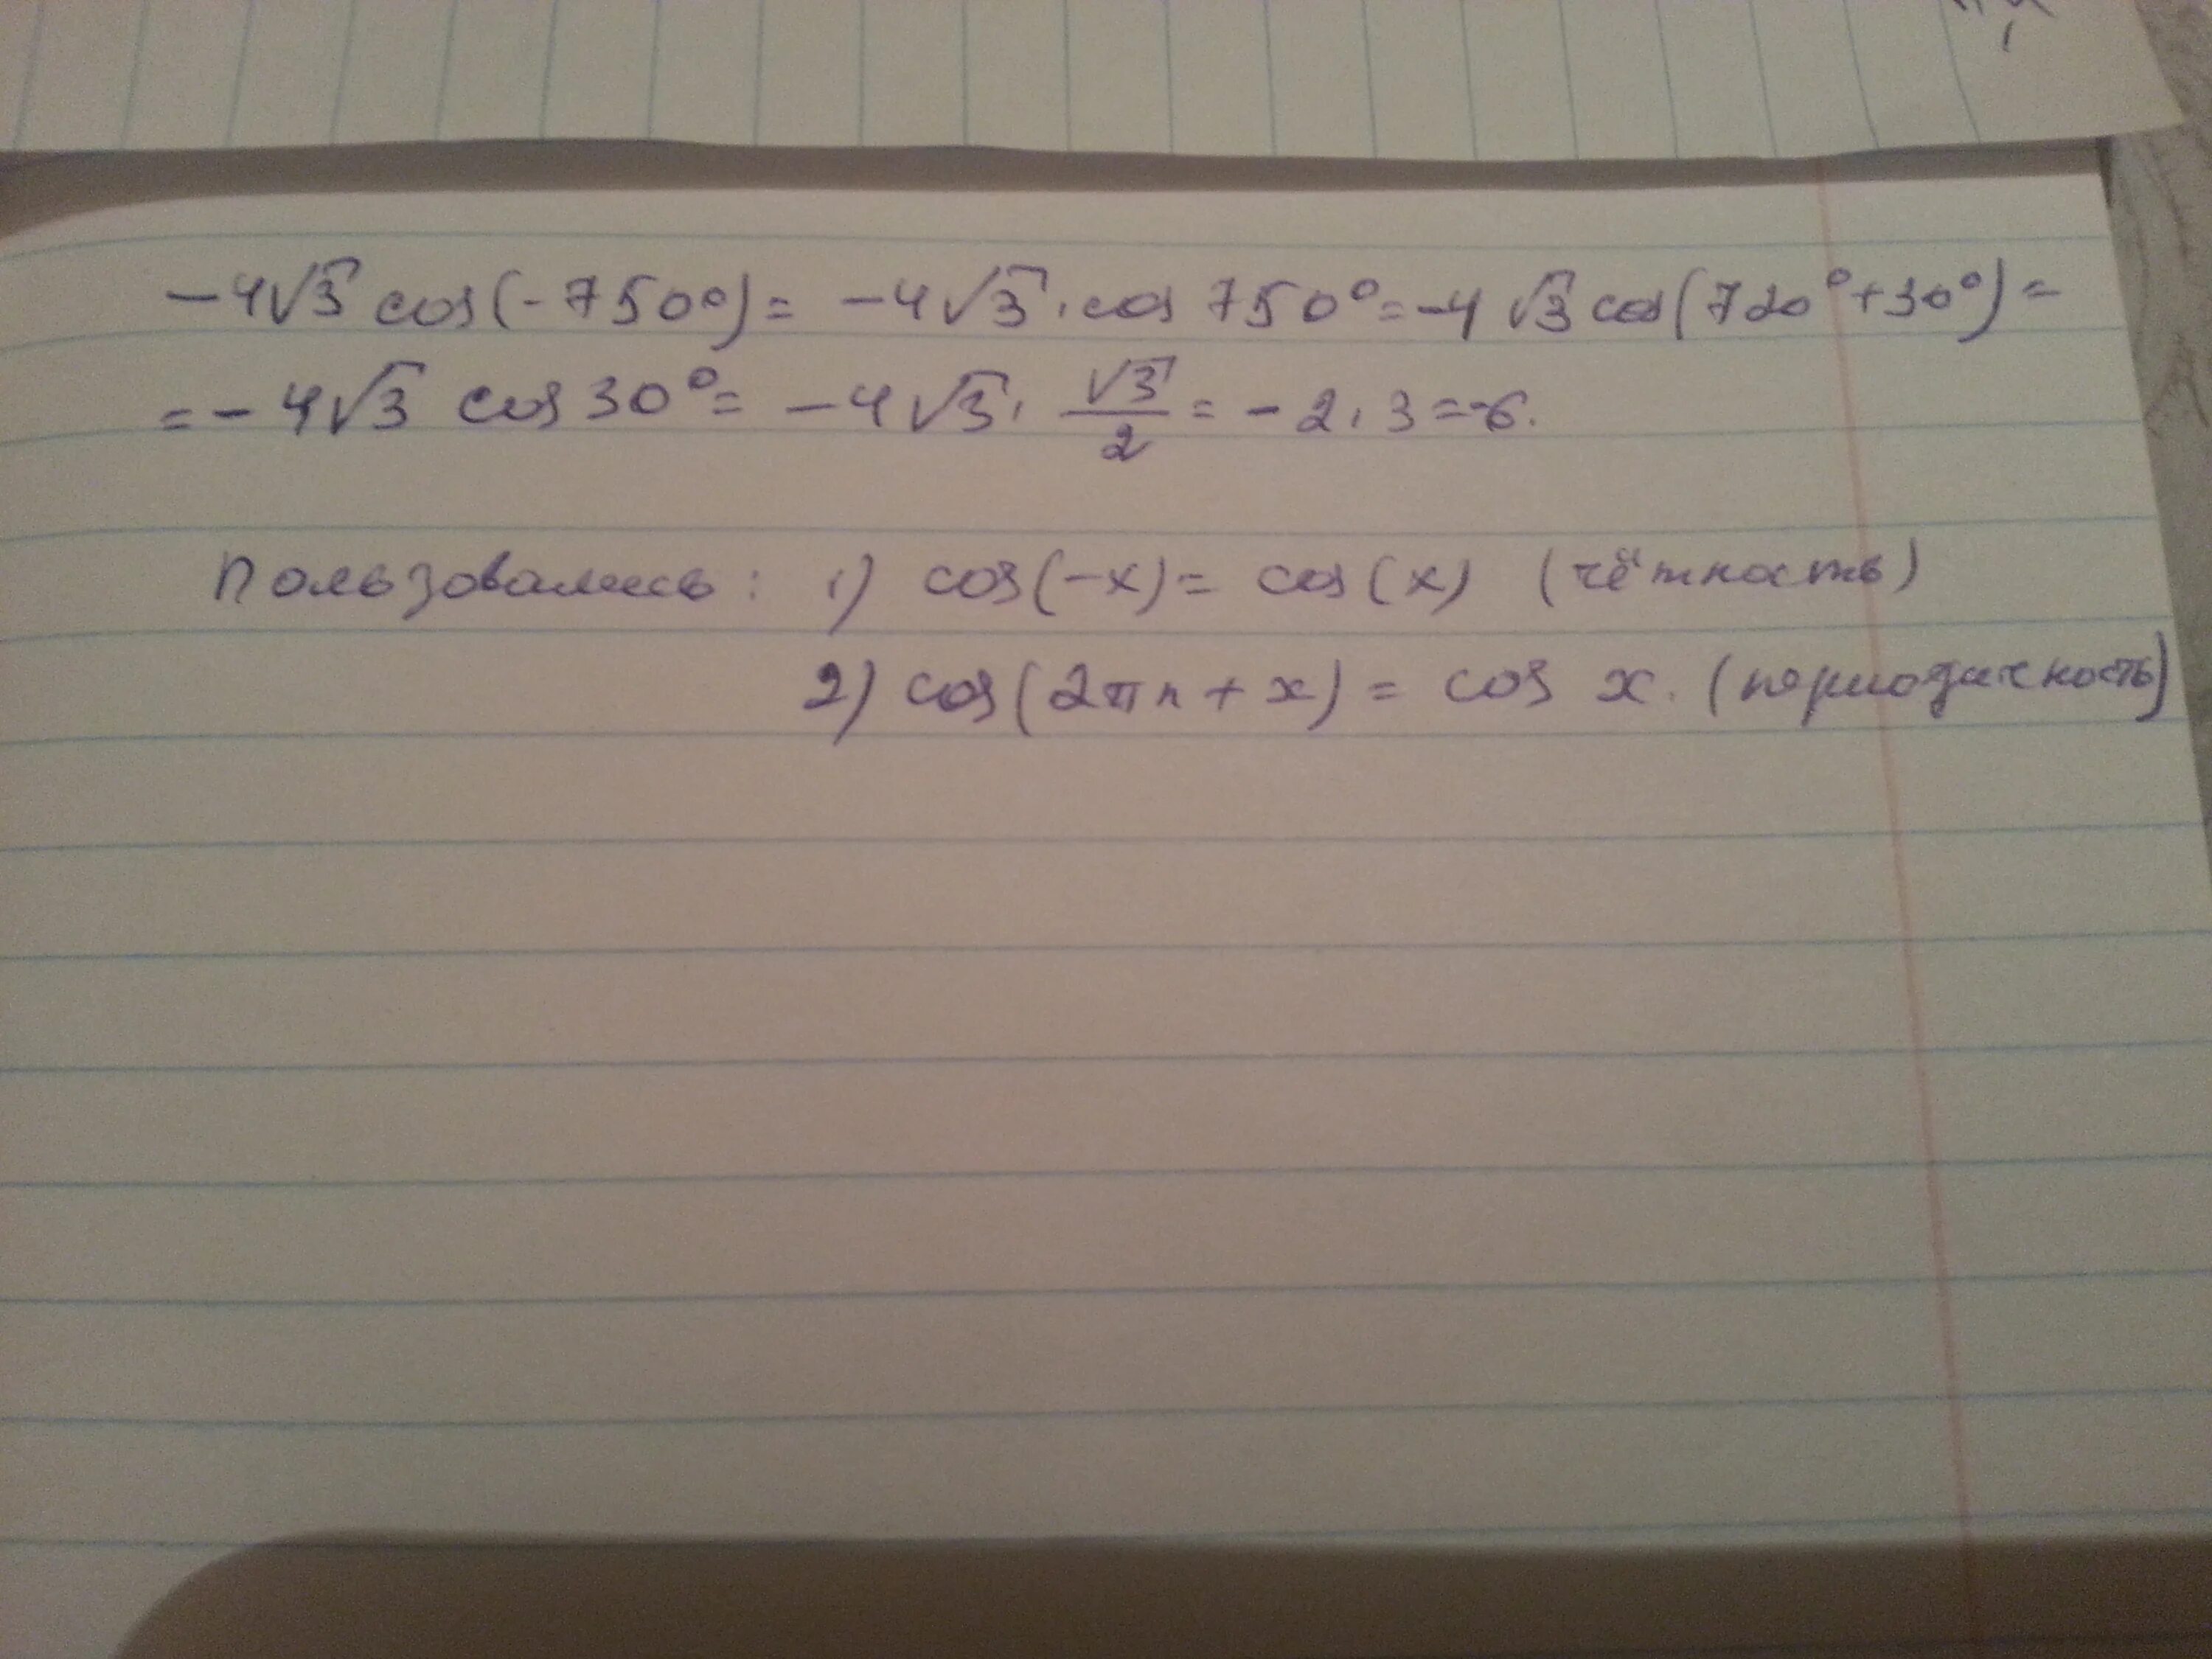 −4√3 cos(-750°) = −4√3 · cos 750° = −4 √3 cos(720° + 30°) =
= − 4√3 cos 30° = −4√3 · √3/2 = − 2 · 3 = −6.
Пользовались: 1) cos(−x) = cos(x) (чётность)
2) cos(2πn + x) = cos x. (периодичность)